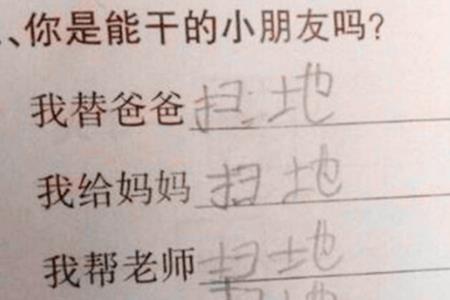 、你是能干的小朋友吗？
我替爸爸扫地
我给妈妈扫地
我帮老师扫地